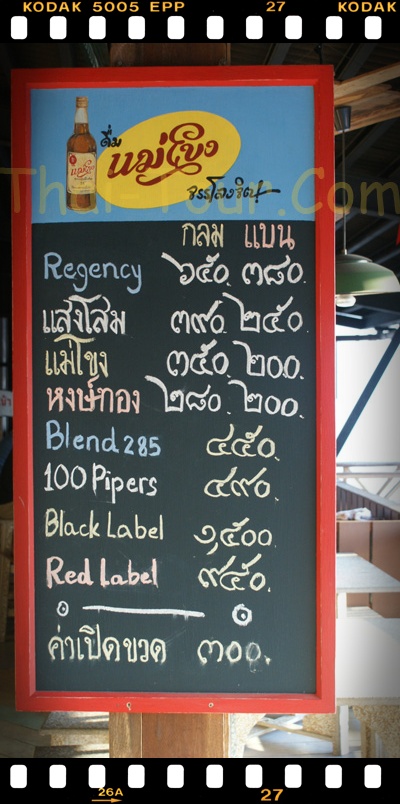 KODAK 5005 EPP 27 KODAK
ดื่ม
แม่โขง
Thai-Tour.Com
กลม แบน
Regency ๖๕๐. ๓๘๐.
แสงโสม ๓๙๐. ๒๕๐.
แม่โขง ๓๕๐. ๒๐๐.
หงษ์ทอง ๒๘๐. ๒๐๐.
Blend 285 ๔๕๐.
100 Pipers ๔๙๐.
Black Label ๑,๕๐๐
Red Label ๙๕๐.
ค่าเปิดขวด ๓๐๐.
26A 27